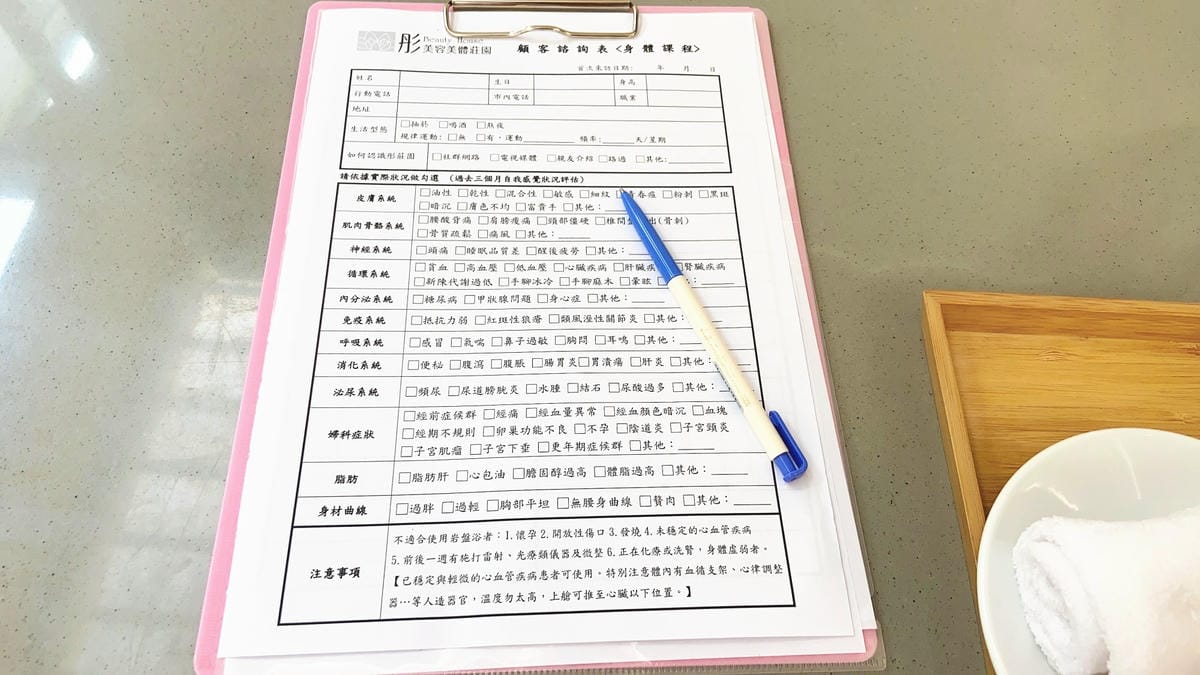 彤 Beauty House
美容美體莊園
顧客諮詢表<身體課程>
首次來訪日期: 年 月 日
姓名 生日 身高
行動電話 市內電話 職業
地址
生活型態 □抽菸 □喝酒 □熬夜
規律運動: □無 □有，運動 頻率: 天/星期
如何認識彤莊園 □社群網路 □電視媒體 □親友介紹 □路過 □其他:
請依據實際狀況做勾選 (過去三個月自我感覺狀況評估)
皮膚系統 □油性 □乾性 □混合性 □敏感 □細紋 青春痘 □粉刺 □黑斑
□暗沉 □膚色不均 □富貴手 □其他:
肌肉骨骼系統 □腰酸背痛 □肩膀痠痛 □頸部僵硬 □椎間 出(骨刺)
□骨質疏鬆 □痛風 □其他:
神經系統 □頭痛 □睡眠品質差 □醒後疲勞 □其他:
循環系統 □貧血 □高血壓 □低血壓 □心臟疾病 □肝臟疾 □腎臟疾病
□新陳代謝過低 □手腳冰冷 □手腳麻木 □暈眩 其他:
內分泌系統 □糖尿病 □甲狀腺問題 □身心症 □其他:
免疫系統 □抵抗力弱 □紅斑性狼瘡 □類風溼性關節炎 □其他:
呼吸系統 □感冒 □氣喘 □鼻子過敏 □胸悶 □耳鳴 □其他:
消化系統 □便秘 □腹瀉 □腹脹 □腸胃炎 □胃潰瘍 □肝炎 □其他:
泌尿系統 □頻尿 □尿道膀胱炎 □水腫 □結石 □尿酸過多 □其他:
婦科症狀 □經前症候群 □經痛 □經血量異常 □經血顏色暗沉 □血塊
□經期不規則 □卵巢功能不良 □不孕 □陰道炎 □子宮頸炎
□子宮肌瘤 □子宮下垂 □更年期症候群 □其他:
脂肪 □脂肪肝 □心包油 □膽固醇過高 □體脂過高 □其他:
身材曲線 □過胖 □過輕 □胸部平坦 □無腰身曲線 □贅肉 □其他:
注意事項 不適合使用岩盤浴者：1.懷孕 2.開放性傷口 3.發燒 4.未穩定的心血管疾病
5.前後一週有施打雷射、光療類儀器及微整 6.正在化療或洗腎，身體虛弱者。
【已穩定與輕微的心血管疾病患者可使用。特別注意體內有血循支架、心律調整
器…等人造器官，溫度勿太高，上艙可推至心臟以下位置。】